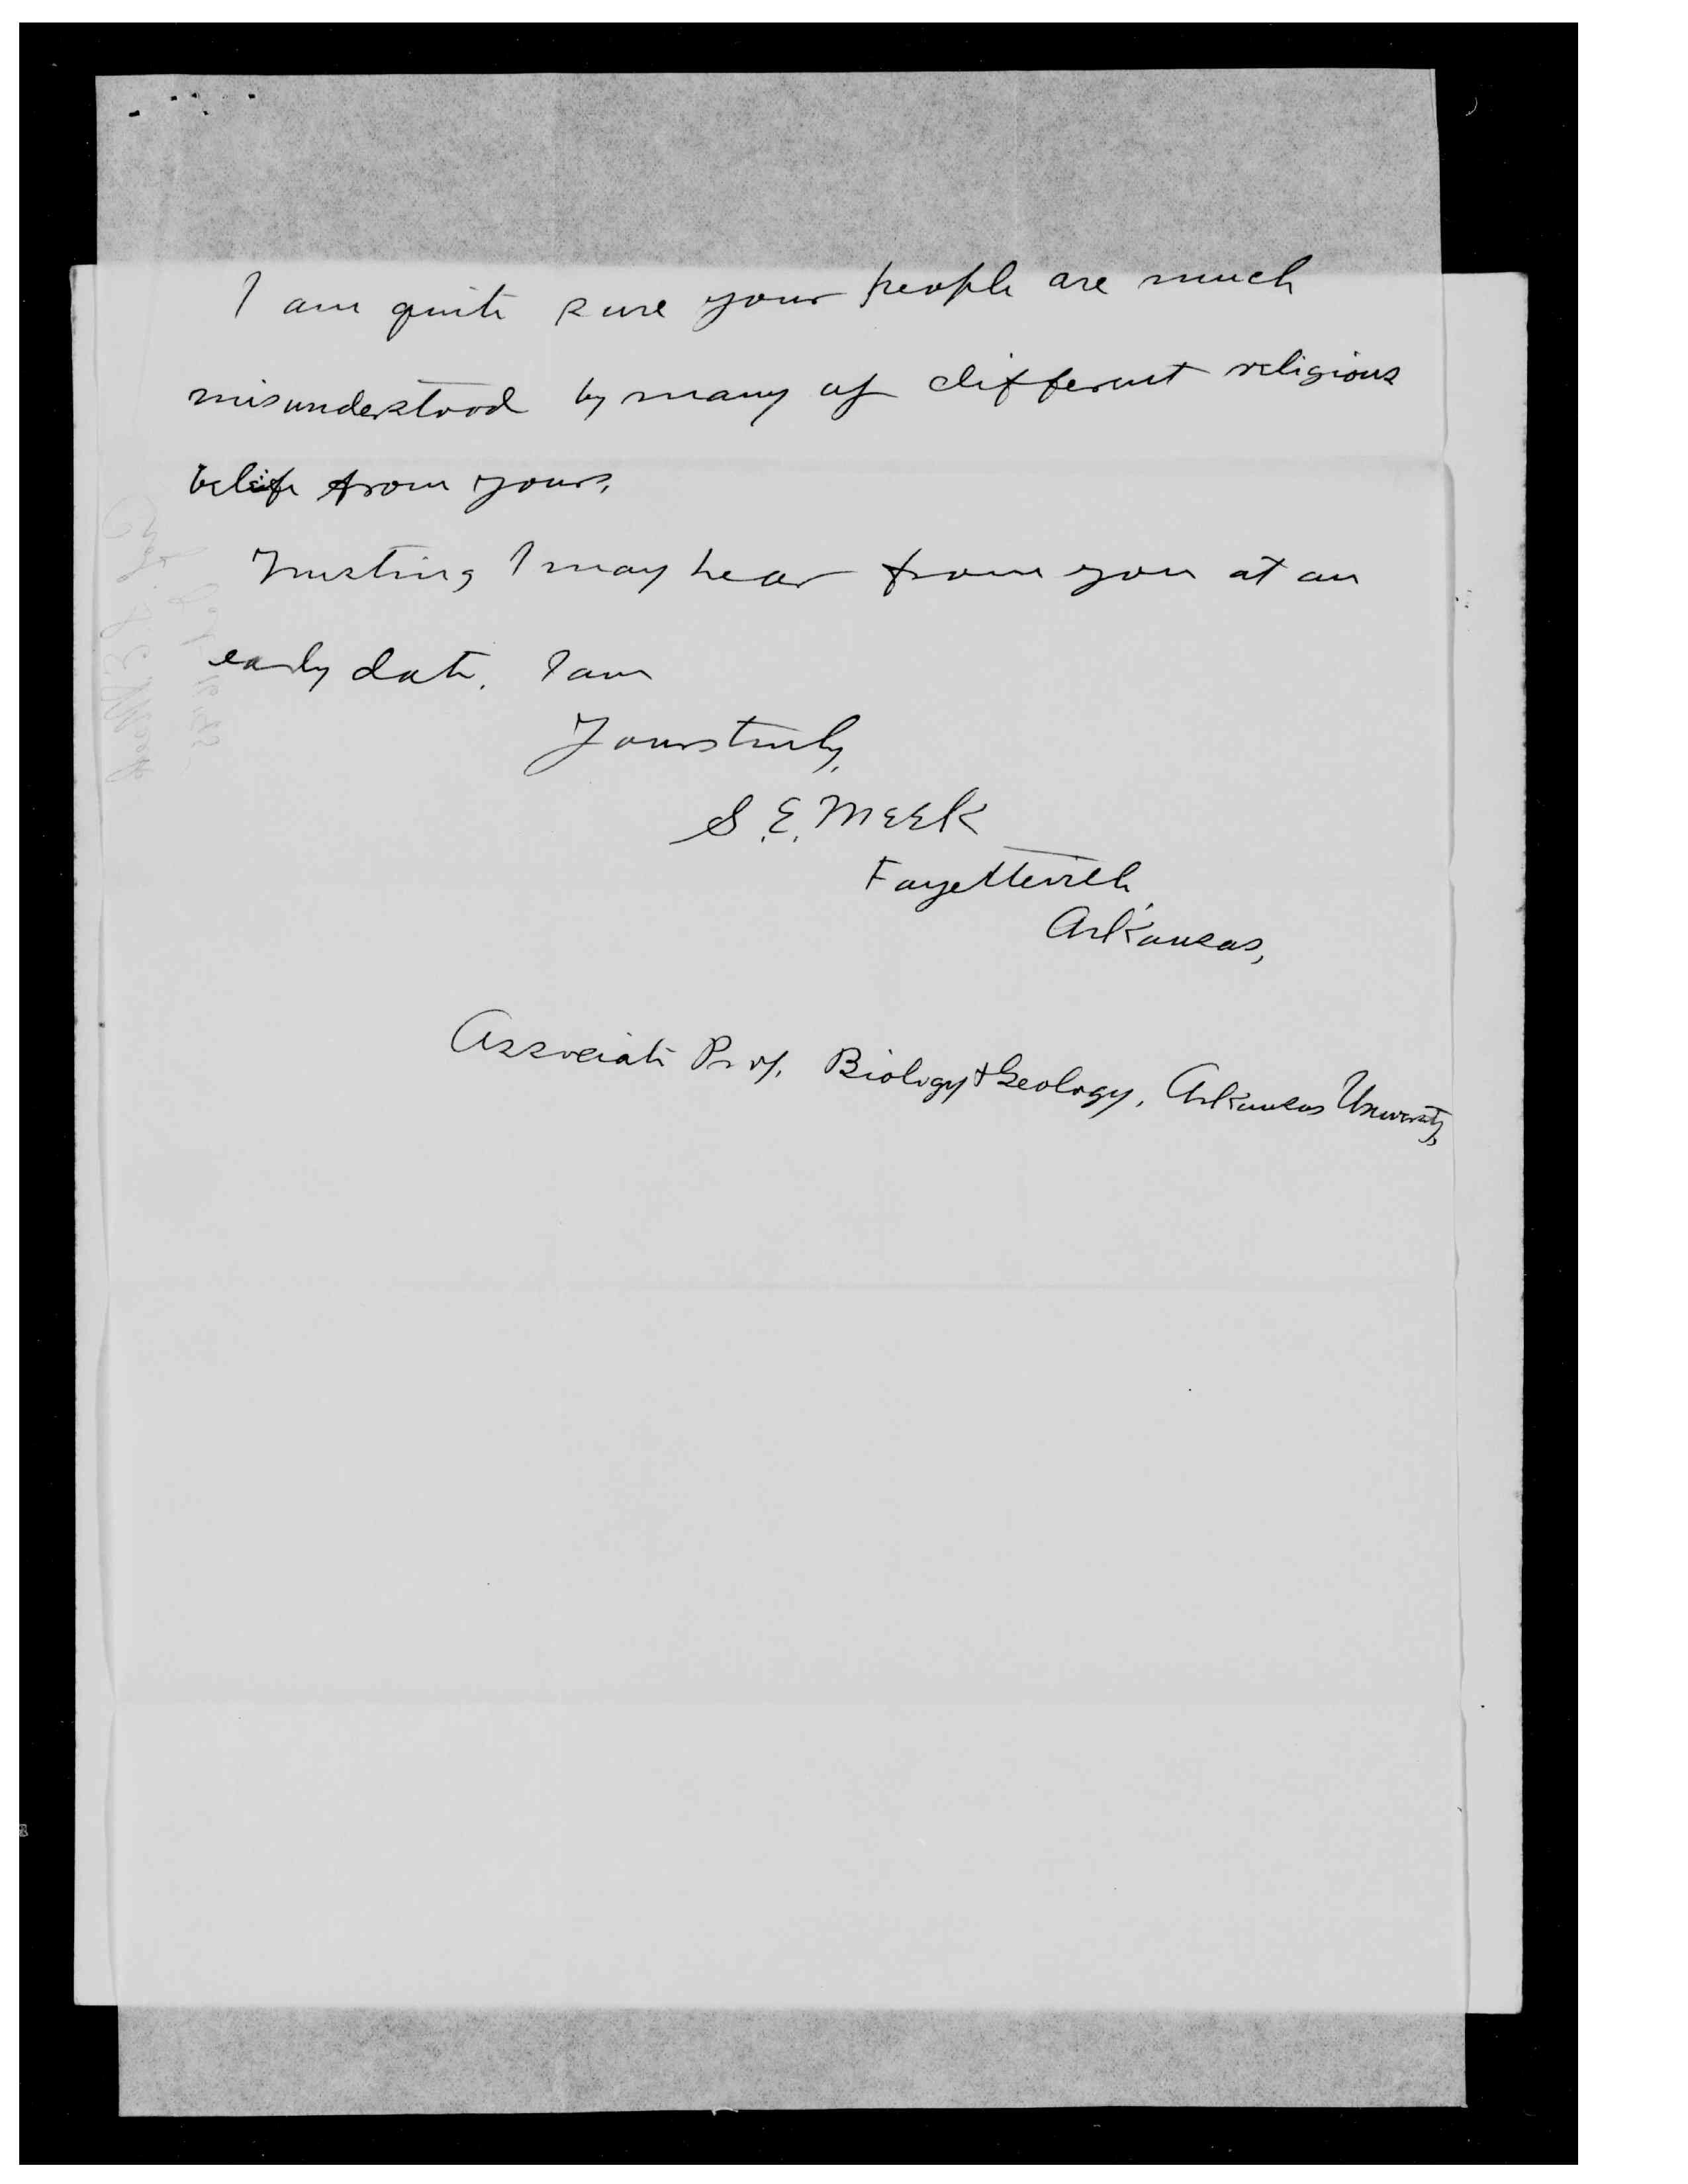 I am quite sure your people are much
misunderstood by many of different religious
belief from yours.
Trusting I may hear from you at an
early date. I am
Yours truly,
S. E. Meek
Fayetteville,
Arkansas,
Associate Prof. Biology & Geology, Arkansas University,